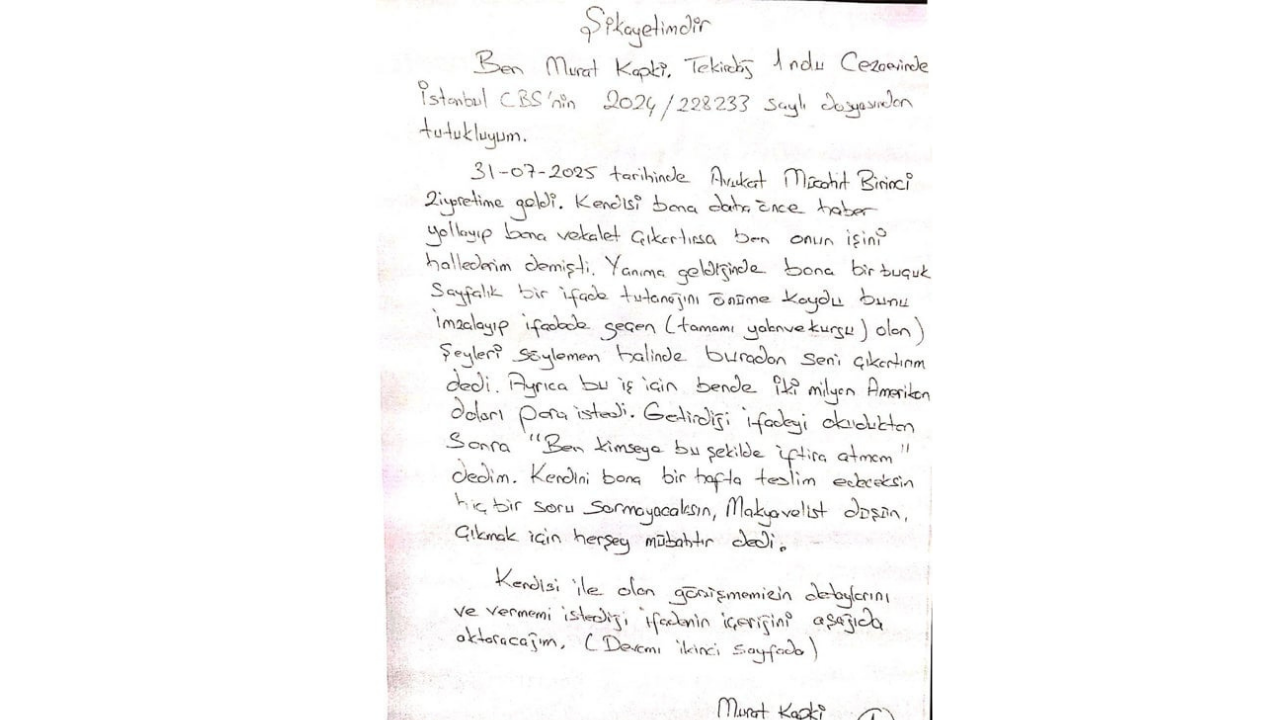 Şikayetimdir
Ben Murat Kapki. Tekirdağ 1 nolu Cezaevinde
İstanbul CBS'nin 2024/228233 sayılı dosyasından
tutukluyum.
31-07-2025 tarihinde Avukat Mücahit Birinci
Ziyaretime geldi. Kendisi bana daha önce haber
yollayıp bana vekalet çıkartırsa ben onun işini
hallederim demişti. Yanıma geldiğinde bana bir buçuk
Sayfalık bir ifade tutanağını önüme koydu bunu
imzalayıp ifadede geçen (tamamı yalan ve kurgu) olan)
Şeyleri söylemem halinde buradan seni çıkartırım
dedi. Ayrıca bu iş için bende iki milyon Amerikan
doları para istedi. Getirdiği ifadeyi okuduktan
Sonra "Ben kimseye bu şekilde iftira atmam"
dedim. Kendini bana bir hafta teslim edeceksin
hiç bir soru sormayacaksın, Makyavelist düşün,
Çıkmak için herşey mübahtır dedi.
Kendisi ile olan görüşmemizin detaylarını
ve vermemi istediği ifadenin içeriğini aşağıda
aktaracağım. (Devamı ikinci sayfada)
Murat Kapki 1